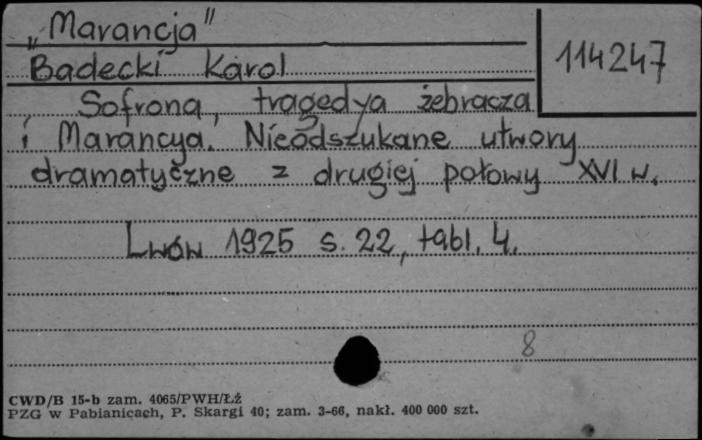 „Marancja"
114247
Badecki Karol
Sofrona, tragedya żebracza
i Marancya. Nieodszukane utwory
dramatyczne z drugiej połowy XVI w.
Lwów 1925 s. 22, tabl. 4.
8
CWD/B 15-b zam. 4065/PWH/ŁŻ
PZG w Pabianicach, P. Skargi 40; zam. 3-66, nakł. 400 000 szt.